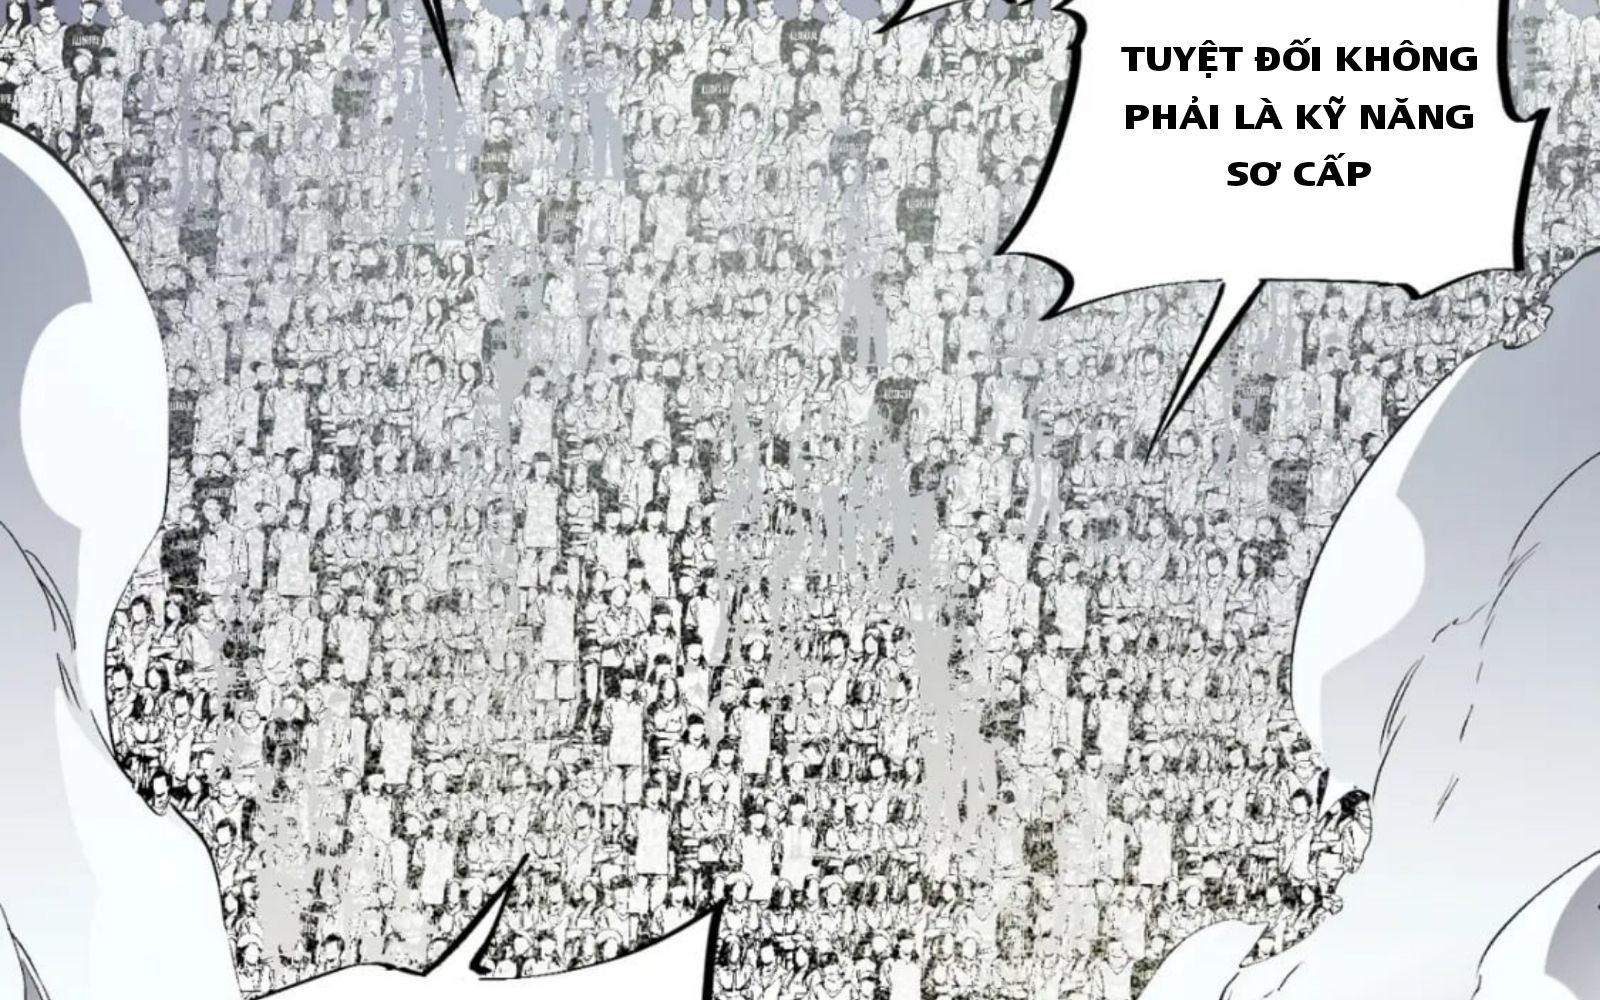 TUYỆT ĐỐI KHÔNG
PHẢI LÀ KỸ NĂNG
SƠ CẤP